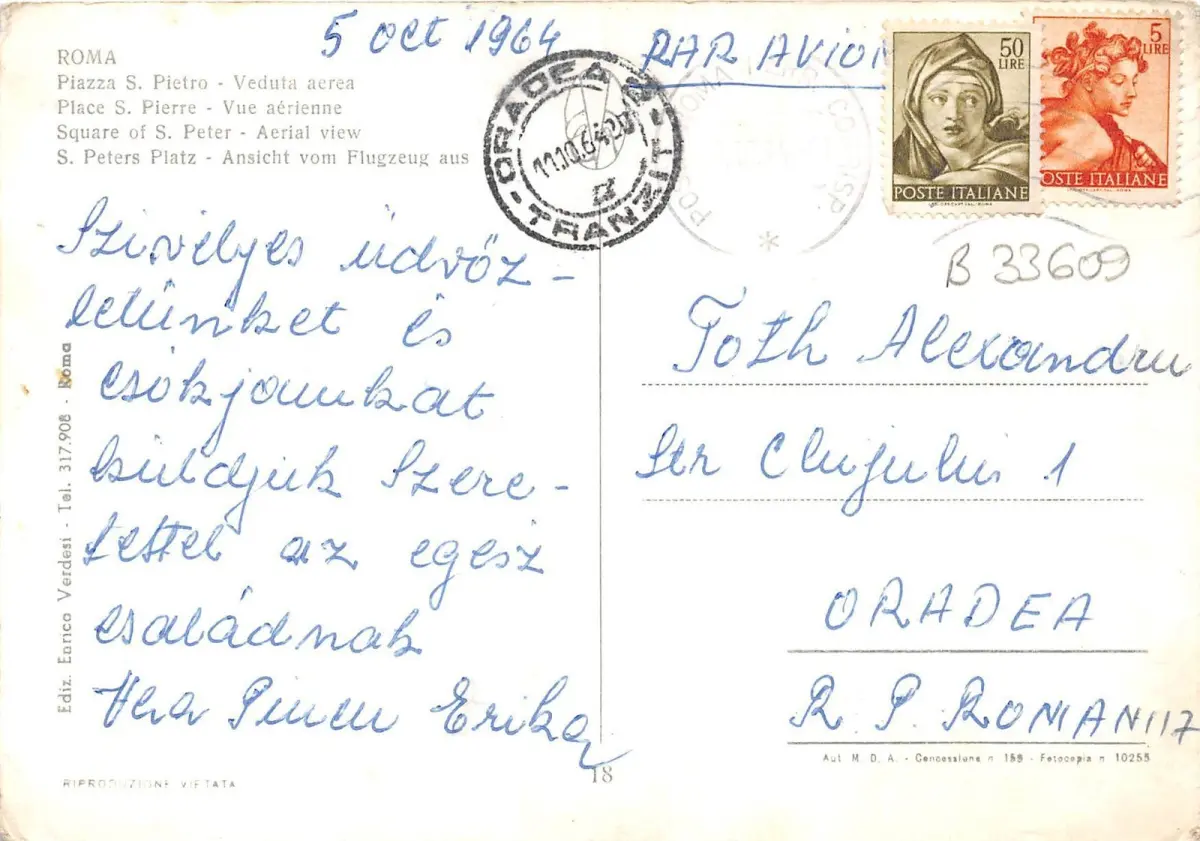 5 oct 1964
PAR AVION
ROMA
Piazza S. Pietro - Veduta aerea
Place S. Pierre - Vue aérienne
Square of S. Peter - Aerial view
S. Peters Platz - Ansicht vom Flugzeug aus
ORADEA
11.10.64
TRANZIT
50
LIRE
POSTE ITALIANE
5
LIRE
POSTE ITALIANE
B 33609
Szivélyes üdvöz-
letünket és
csókjaunkat
küldjük Szere-
tettel az egész
családnak
Vera Erika
Toth Alexandru
Str Clujului 1
ORADEA
R. P. ROMANIA
Ediz. Enrico Verdesi - Tel. 317.908 - Roma
RIPRODUZIONE VIETATA
18
Aut M. D. A. - Concessione n 159 - Fotocopia n 10255